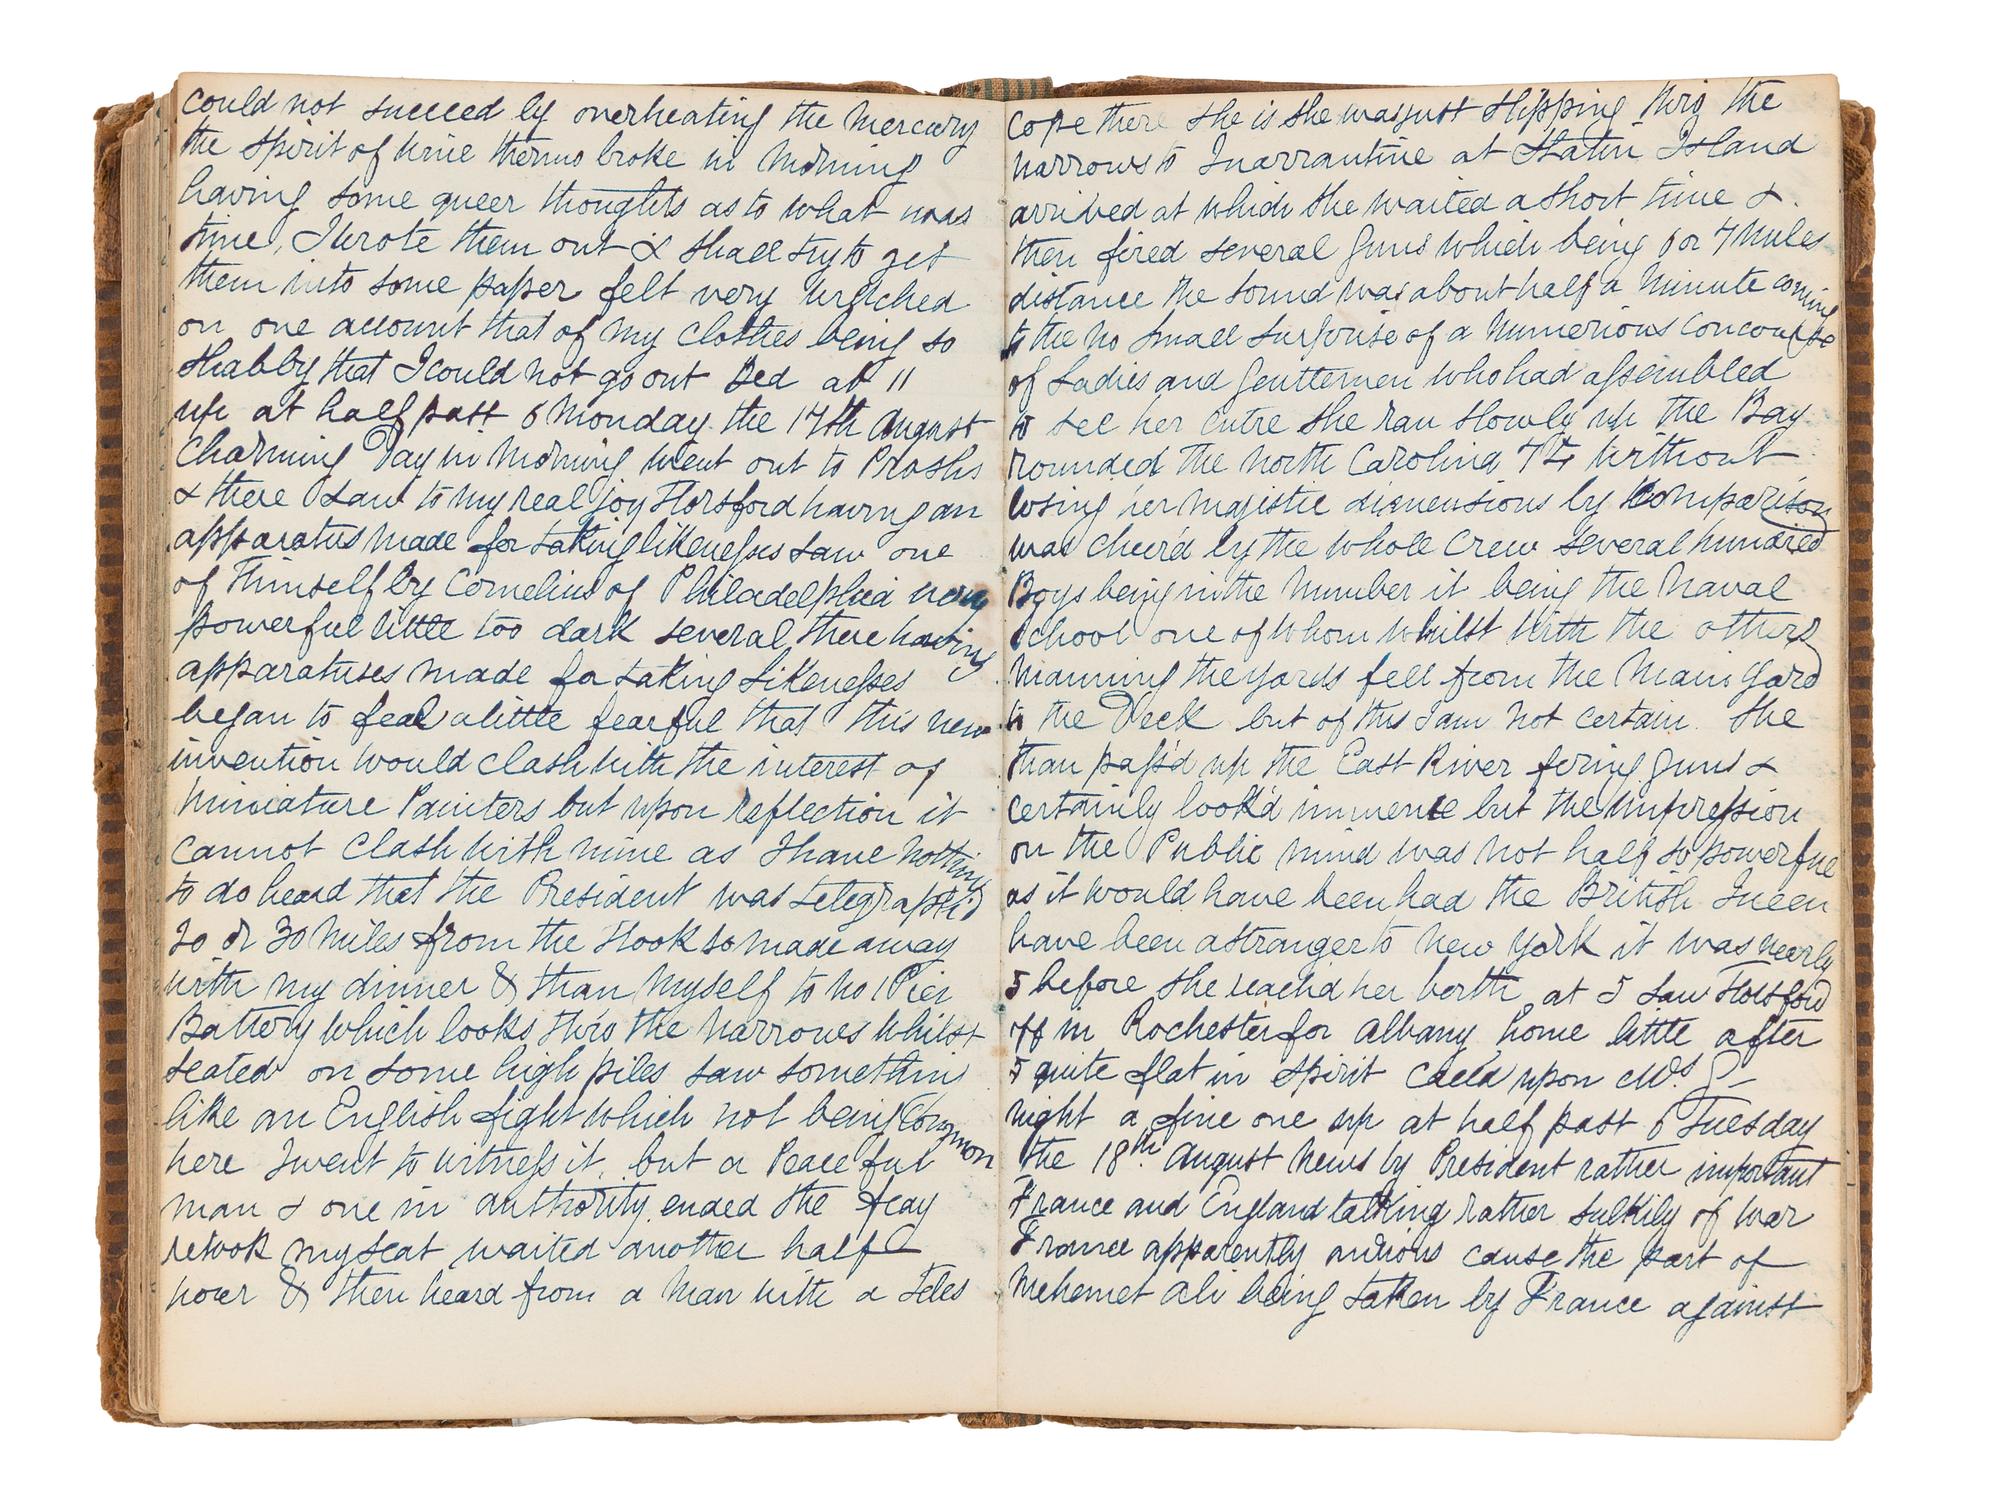 could not succeed by overheating the Mercury
the spirit of Wine thermo broke in Morning
having some queer thoughts as to what was
time, I wrote them out & shall try to get
them into some paper felt very wretched
on one account that of my clothes being so
shabby that I could not go out Bed at 11
up at half past 6 Monday the 17th August
Charming Day in Morning went out to Proshs
& there saw to my real joy Horsford having an
apparatus made for taking likenesses saw one
of Himself by Cornelius of Philadelphia very
powerful little too dark several there having
apparatuses made for taking Likenesses
began to feal a little fearful that this new
invention would clash with the interest of
Miniature Painters but upon reflection it
cannot clash with mine as I have nothing
to do heard that the President was telegraph'd
20 or 30 Miles from the Hook so made away
with my dinner & than Myself to No 1 Pier
Battery which looks thro the Narrows whilst
seated on some high piles saw something
like an English fight which not being Common
here I went to witness it, but a Peaceful
man & one in authority ended the fray
retook my seat waited another half
hour & then heard from a Man with a Teles
cope there she is she was just slipping thro the
Narrows to Quarrantine at Staten Island
arrived at which she waited a short time &
then fired several Guns which being 6 or 7 Miles
distance the sound was about half a Minute coming
to the no small surprise of a Numerious Concourse
of Ladies and Gentlemen who had assembled
to see her entre She ran slowly up the Bay
rounded the North Carolina 74 without
losing her Majestic dismensions by Comparison
was cheer'd by the whole Crew several hundred
Boys being in the Number it being the Naval
School one of whom whilst With the others
Manning the yards fell from the Main Yard
to the Deck but of this I am not certain. She
than pass'd up the East River firing Guns &
certainly look'd immence but the impression
on the Public mind was not half so powerful
as it would have been had the British Queen
have been a stranger to New York it was nearly
5 before she reachd her berth at 5 saw Horsford
off in Rochester for Albany home little after
5 quite flat in spirit Calld upon Mrs G—
night a fine one up at half past 6 Tuesday
the 18th August News by President rather important
France and England talking rather sulkily of War
France apparently anxious cause the part of
Mehemet Ali being taken by France against